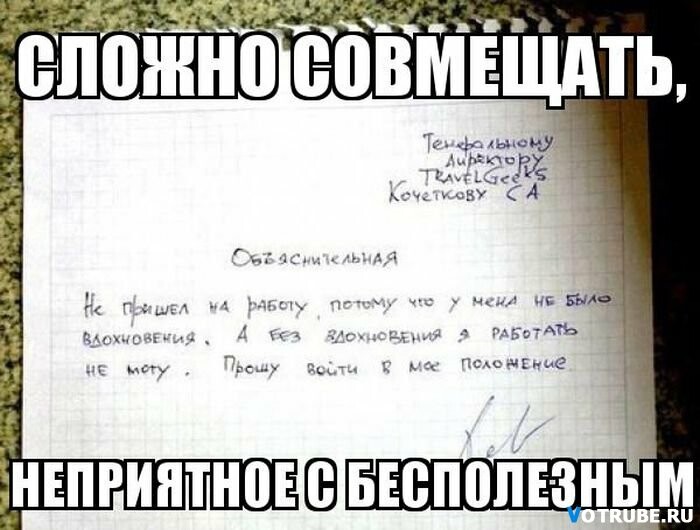 СЛОЖНО СОВМЕЩАТЬ,
Генеральному
Директору
TRAVELGeeks
Кочеткову С А
Объяснительная
Не пришел на работу, потому что у меня не было
вдохновения. А без вдохновения я работать
не могу. Прошу войти в мое положение
НЕПРИЯТНОЕ С БЕСПОЛЕЗНЫМ
VOTRUBE.RU